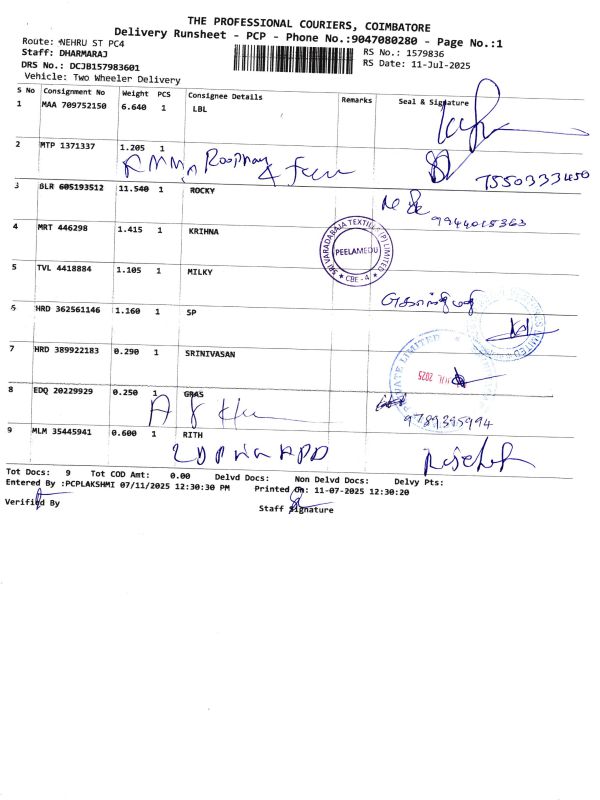 THE PROFESSIONAL COURIERS, COIMBATORE
Delivery Runsheet - PCP - Phone No.:9047080280 - Page No.:1
Route: NEHRU ST PC4
Staff: DHARMARAJ
RS No.: 1579836
DRS No.: DCJB157983601
RS Date: 11-Jul-2025
Vehicle: Two Wheeler Delivery
S No Consignment No Weight PCS Consignee Details Remarks Seal & Signature
1 MAA 709752150 6.640 1 LBL
2 MTP 1371337 1.205 1
7550333450
3 BLR 605193512 11.540 1 ROCKY
9944015363
4 MRT 446298 1.415 1 KRIHNA
SRI VARADARAJA TEXTILE (P) LIMITED
PEELAMEDU
CBE - 4
5 TVL 4418884 1.105 1 MILKY
6 HRD 362561146 1.160 1 SP
7 HRD 389922183 0.290 1 SRINIVASAN
2025
8 EDQ 20229929 0.250 1 GRAS
9789395994
9 MLM 35445941 0.600 1 RITH
Tot Docs: 9 Tot COD Amt: 0.00 Delvd Docs: Non Delvd Docs: Delvy Pts:
Entered By :PCPLAKSHMI 07/11/2025 12:30:30 PM Printed On: 11-07-2025 12:30:20
Verified By
Staff Signature